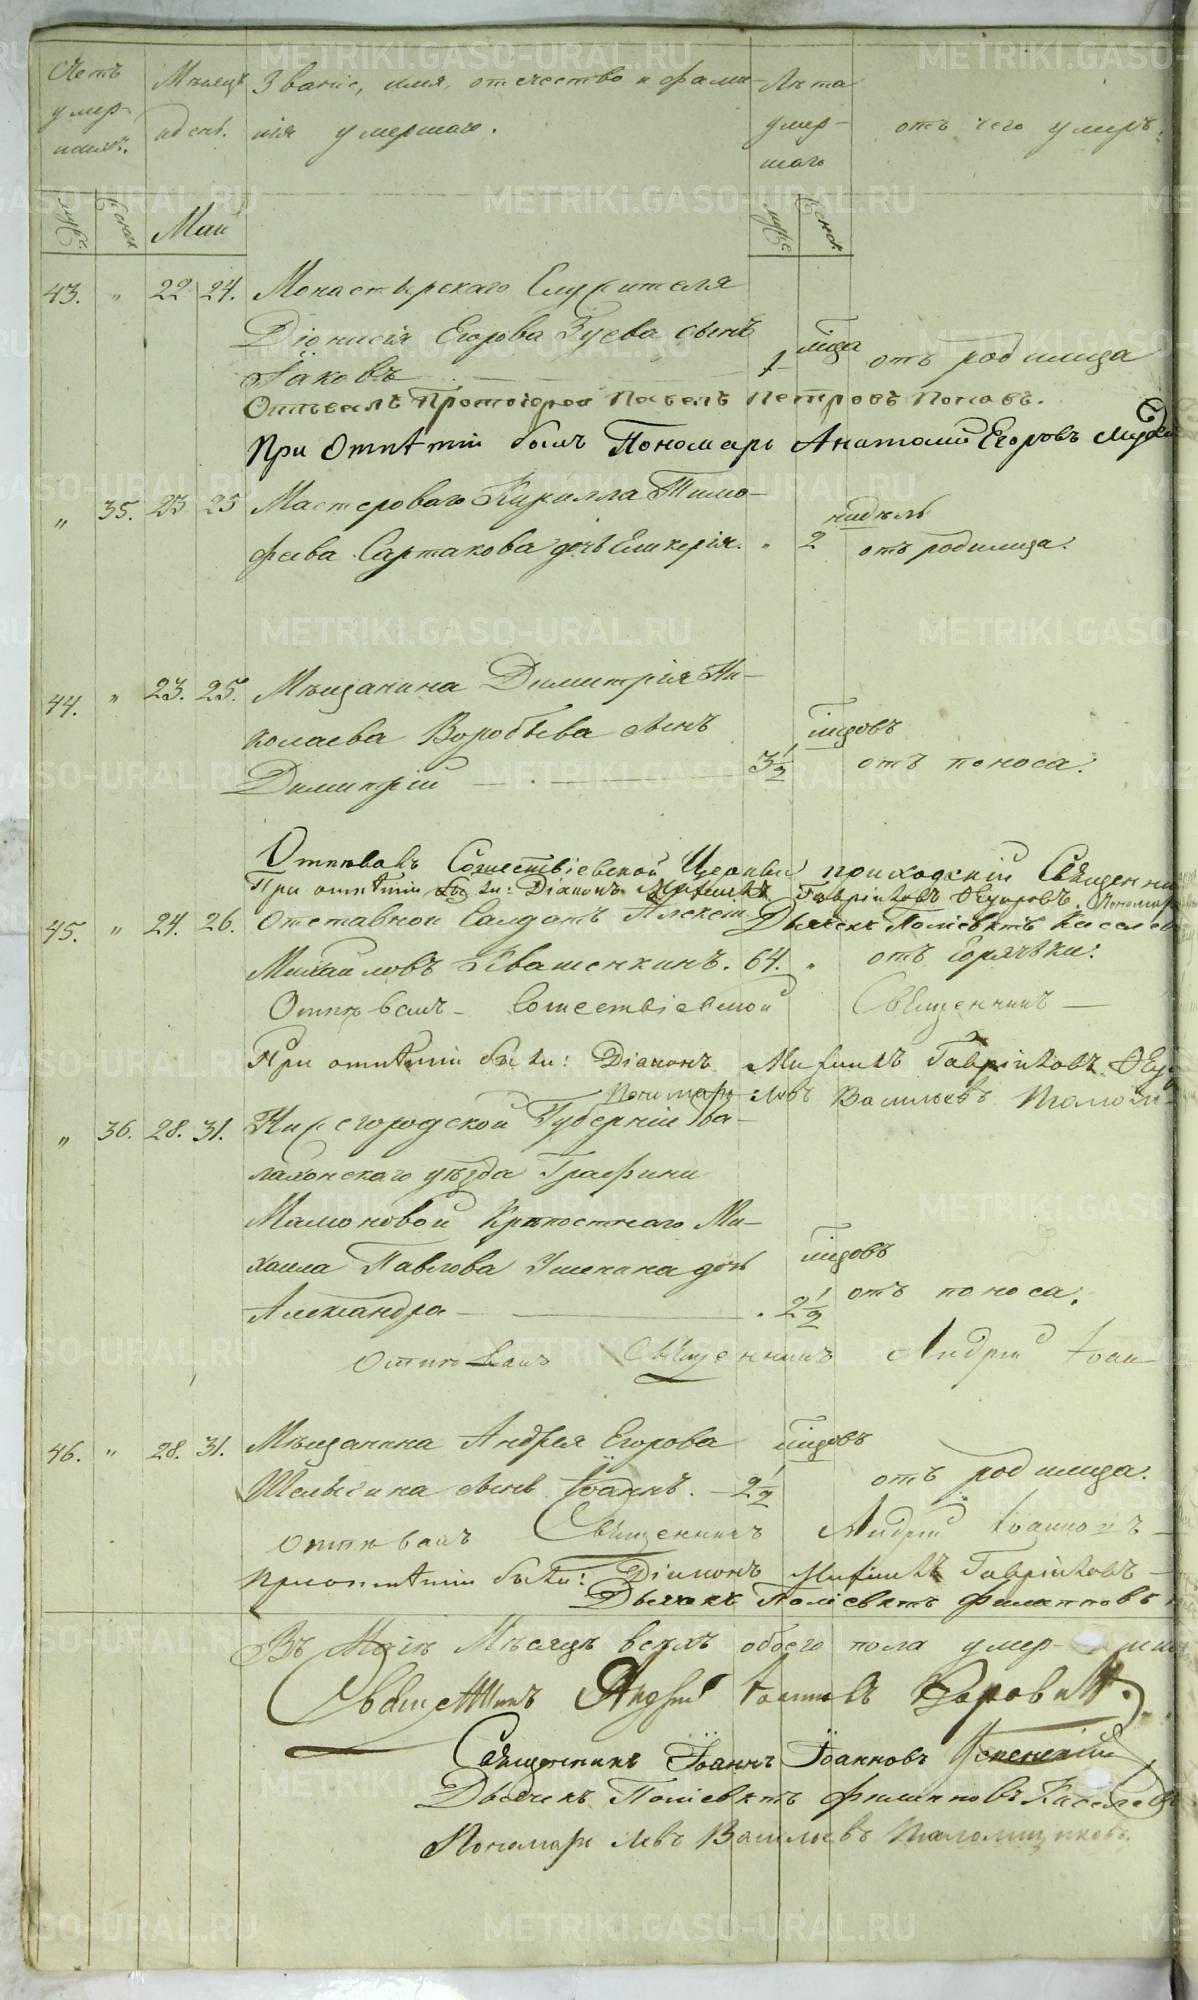 Счетъ умершихъ.
Мѣсяцъ и день.
Званіе, имя, отчество и фамилія умершаго.
Лѣта умершаго
отъ чего умеръ.
муж. женск. Май муж. женск.
43. " 22 24. Монастырскаго Служителя
Діонисія Егорова Зуева сынъ года
Іаковъ 1 отъ родимца
Отпѣвалъ Протоіерей Павелъ Петровъ Поповъ.
При отпѣтіи былъ Пономарь Анатолій Егоровъ
" 35. 23 25 Мастероваго Кирилла Тимо- нидѣль
феева Сартакова дочь Гликерія. " 2 отъ родимца.
44. " 23. 25. Мѣщанина Димитрія Ни-
колаева Воробьева сынъ годовъ
Димитрій 3½ отъ поноса.
Отпѣвалъ Сошествіевской Церкви приходскій Священни
При отпѣтіи были: Діаконъ Гавріиловъ Пономар
45. " 24. 26. Отставной Салдатъ Алексѣй Дьячекъ Поліевктъ Киселев
Михайловъ Квашенкинъ. 64. " отъ Горячьки.
Отпѣвалъ Сошествіевской Священникъ
При отпѣтіи были: Діаконъ Гавріиловъ
Пономарь Левъ Васильевъ
" 36. 28. 31. Нижегородской Губерніи Ба-
лахонскаго уѣзда Графини
Мамоновой Крѣпостнаго Ми-
хаила Павлова дочь годовъ
Александра . 2½ отъ поноса.
отпѣвалъ Священникъ Андрей Іоан
46. " 28. 31. Мѣщанина Андрея Егорова годовъ
сынъ Іоаннъ. 2½ отъ родимца.
отпѣвалъ Священникъ Андрей Іоанновъ
При отпѣтіи были: Діаконъ Гавріиловъ
Дьячекъ Поліевктъ Филипповъ
Въ Маіѣ Мѣсяцѣ всѣхъ обоего пола умер-
Священникъ Андрей Іоанновъ
Священникъ Іоаннъ Іоанновъ Успенскій
Дьячекъ Поліевктъ Филипповъ Киселевъ
Пономарь Левъ Васильевъ
METRIKI.GASO-URAL.RU